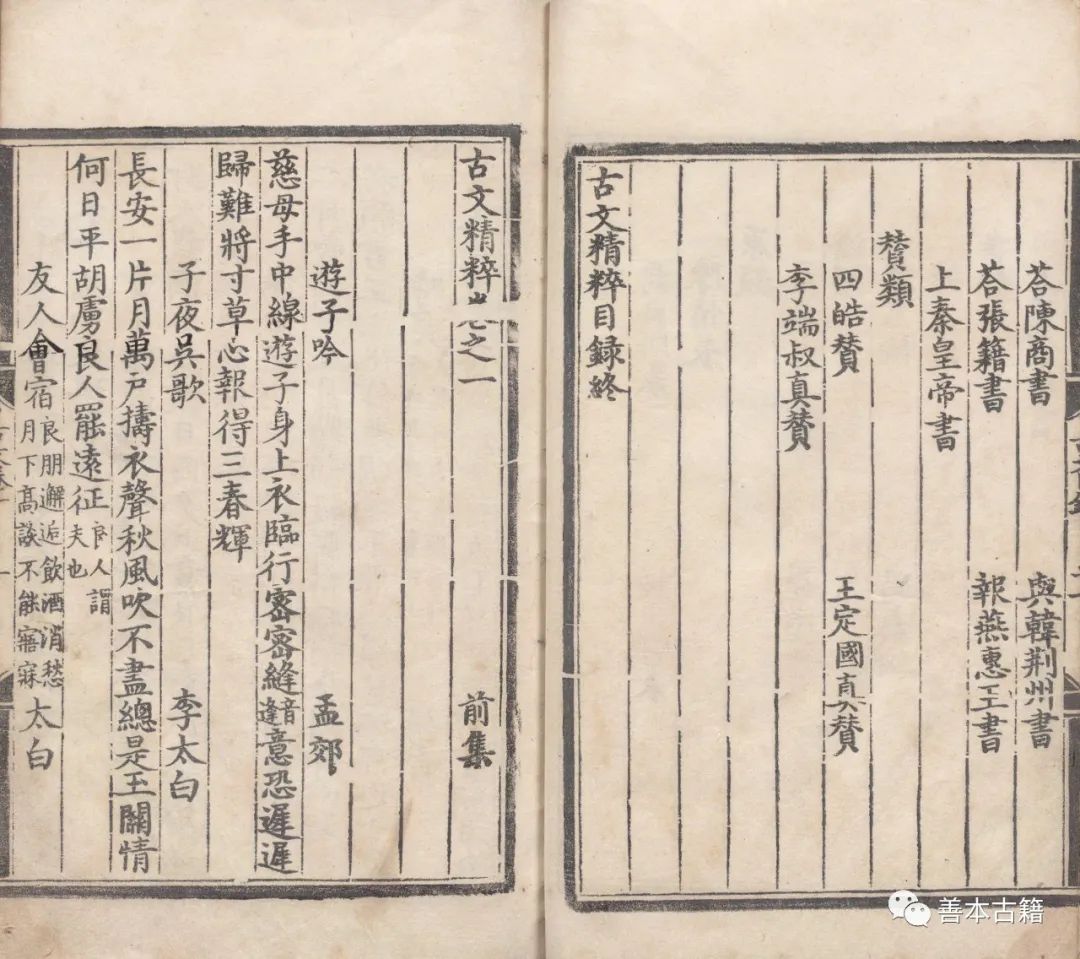 荅陳商書 與韓荆州書
荅張籍書 報燕惠王書
上秦皇帝書
賛類
四皓賛 王定國真賛
李端叔真賛
古文精粹目録終
古文精粹卷之一 前集
遊子吟 孟郊
慈母手中線遊子身上衣臨行密密縫音逢意恐遲遲
歸難將寸草心報得三春輝
子夜吳歌 李太白
長安一片月萬戸擣衣聲秋風吹不盡總是玉關情
何日平胡虜良人罷遠征良人謂夫也
友人會宿良朋邂逅飲酒消愁月下髙談不能寤寐 太白
善本古籍